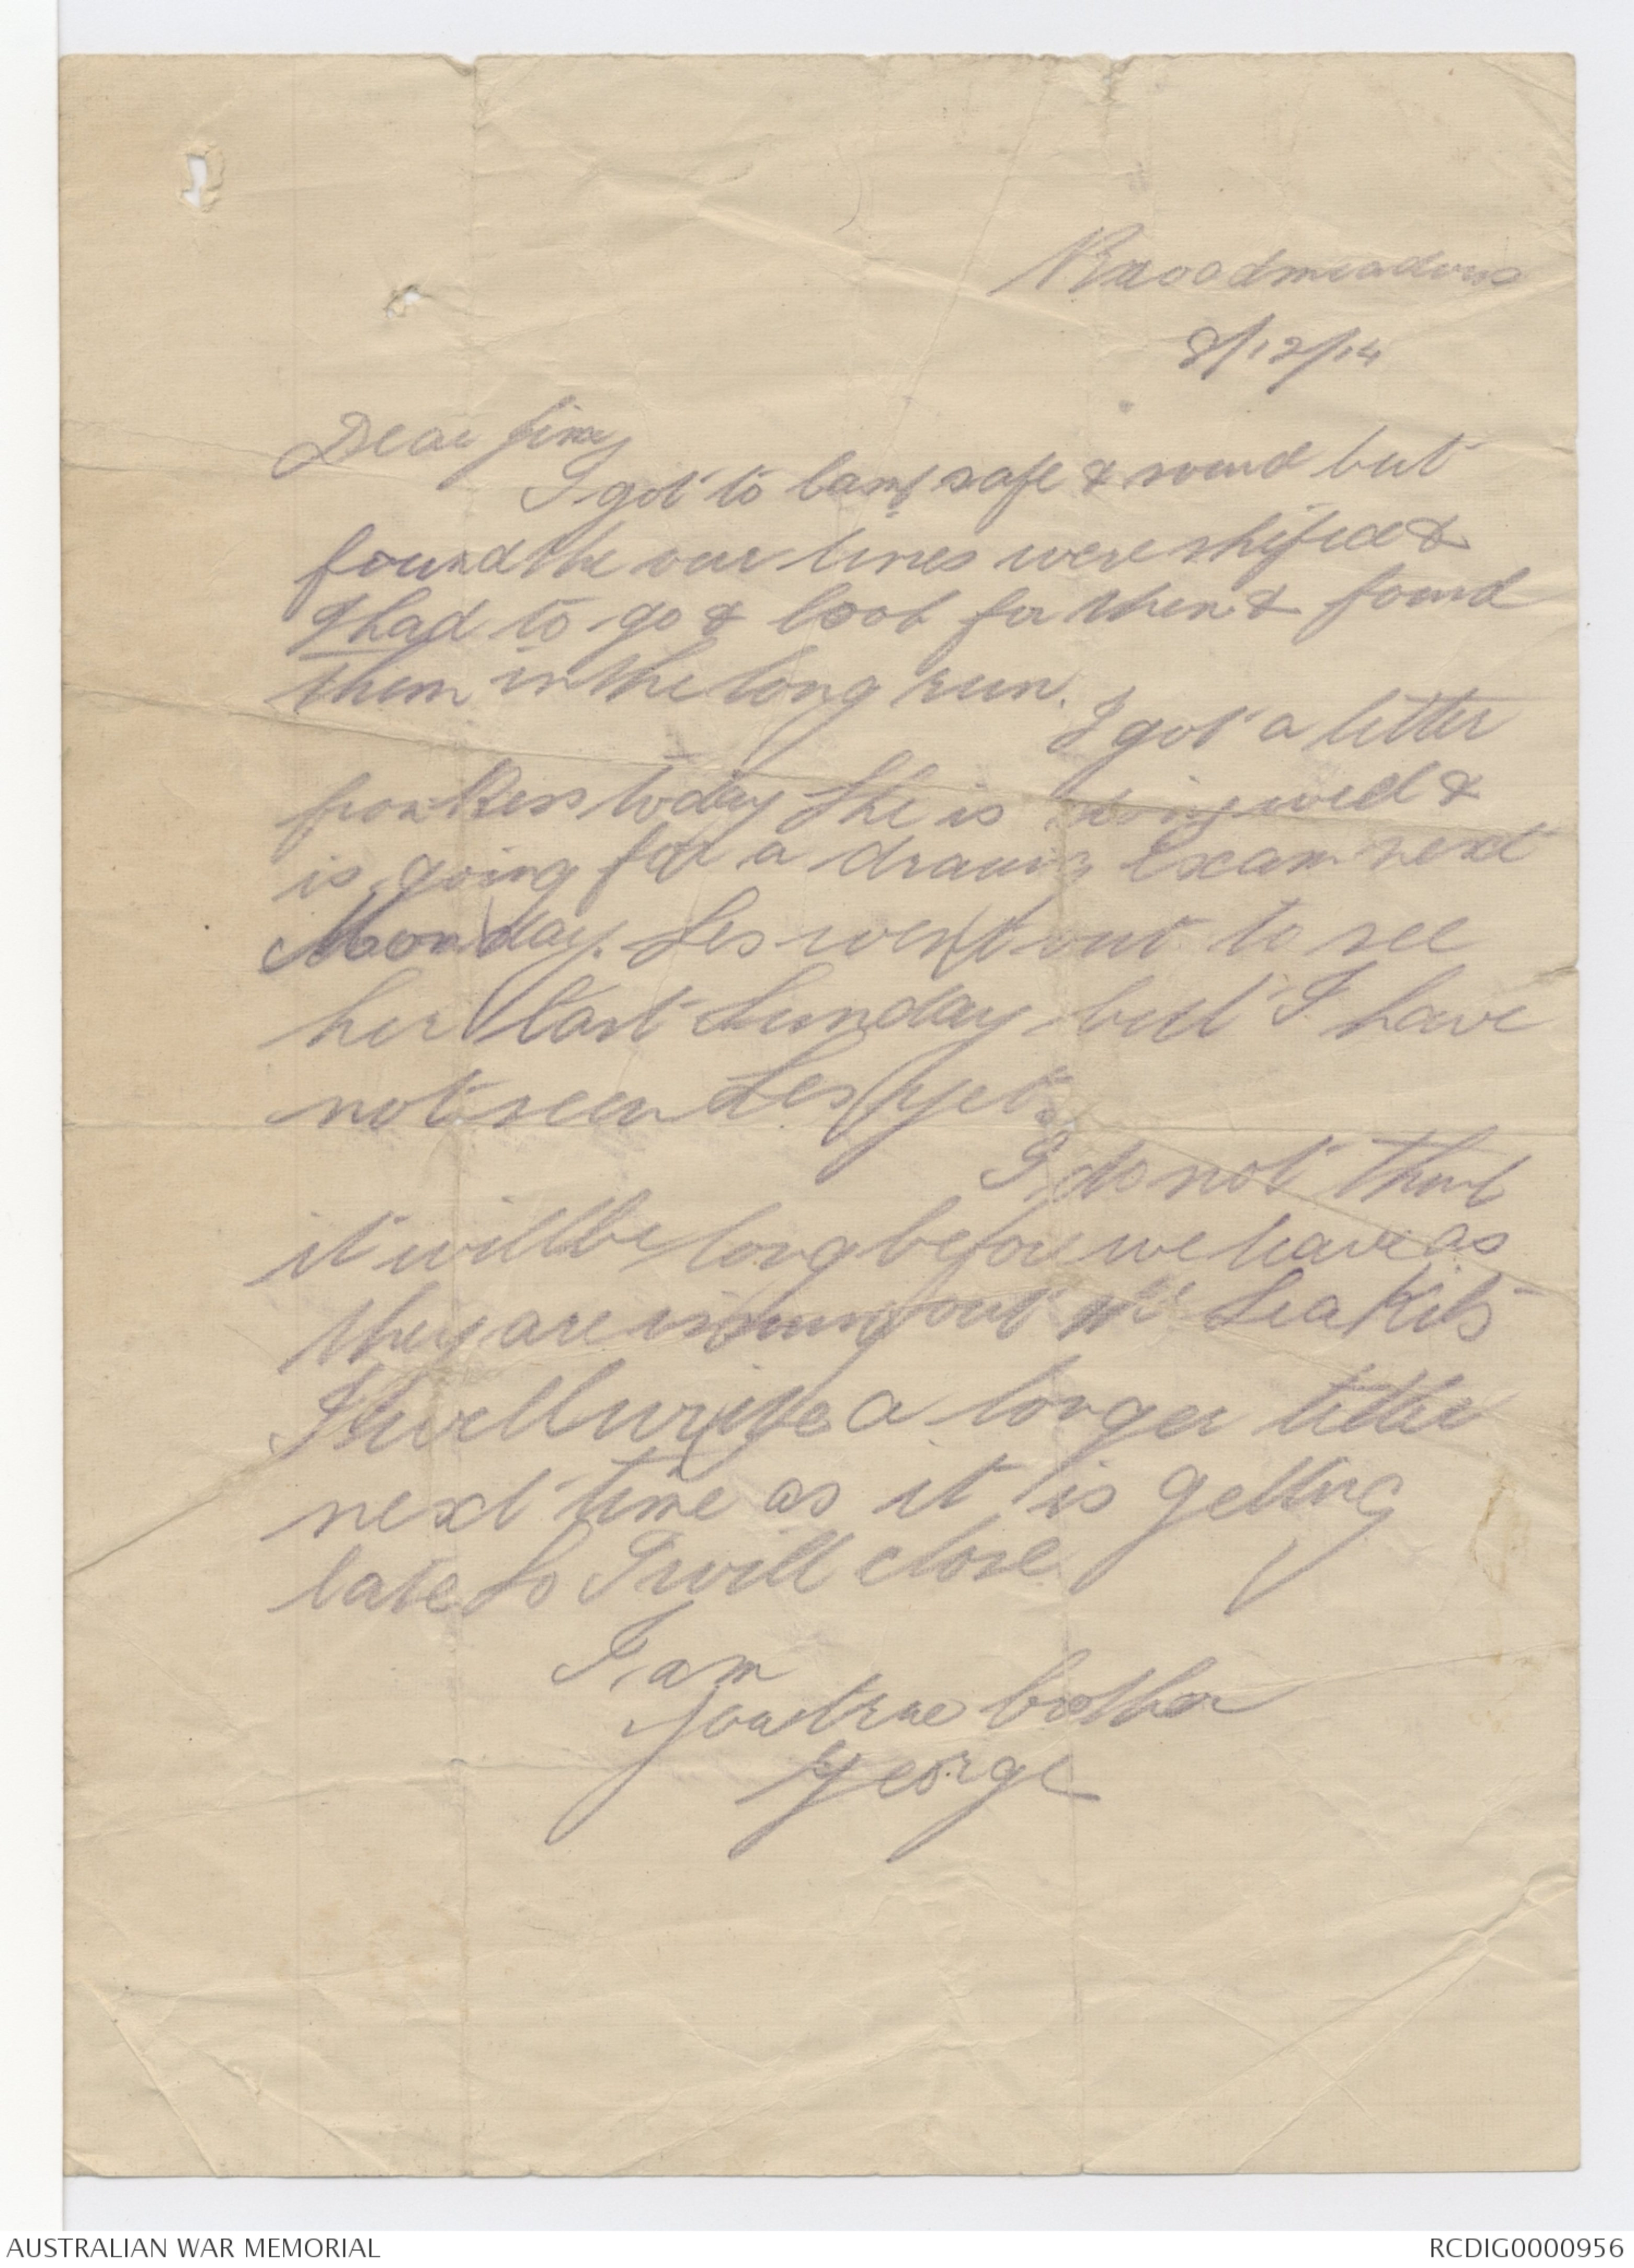 Broadmeadows
8/12/14
Dear Jim,
I got to camp safe & sound but
found the our lines were shifted &
I had to go & look for them & found
them in the long run.
I got a letter
from Bess today She is doing well &
is going for a drawing Exam next
Monday. Les went out to see
her last Sunday but I have
not seen Les yet.
I do not think
it will be long before we leave as
they are issuing out Sea Kits
I will write a longer letter
next time as it is getting
late So I will close
I am
Your true brother
George
AUSTRALIAN WAR MEMORIAL
RCDIG0000956